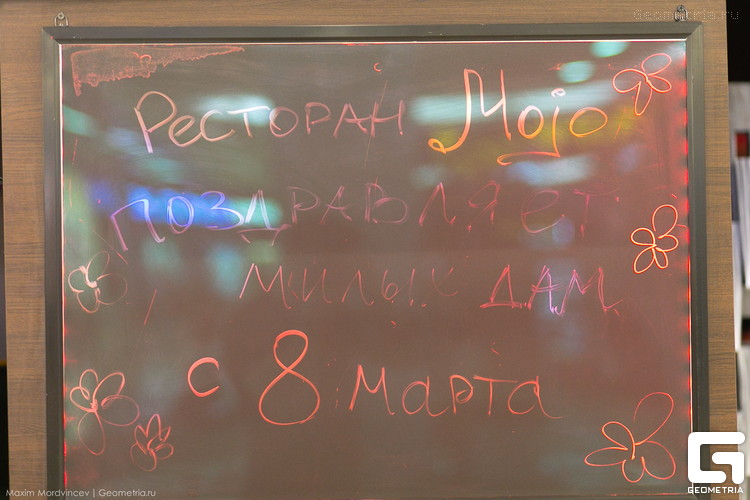 Geometria.ru
Ресторан Mojo
поздравляет
милых дам
с 8 марта
GEOMETRIA
Maxim Mordvincev | Geometria.ru